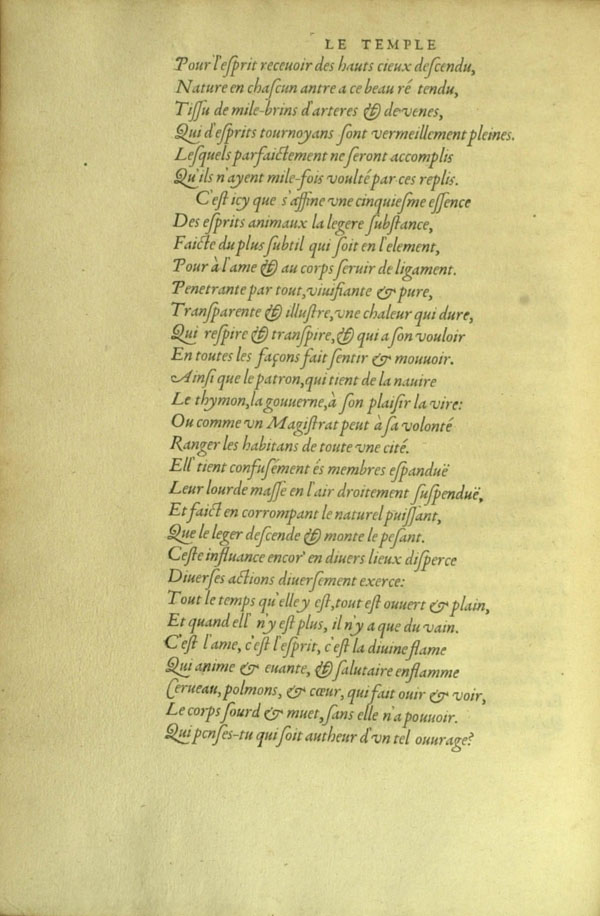 LE TEMPLE
Pour l'eſprit receuoir des hauts cieux deſcendu,
Nature en chaſcun antre a ce beau ré tendu,
Tiſſu de mile-brins d'arteres & de venes,
Qui d'eſprits tournoyans ſont vermeillement pleines.
Leſquels parfaictement ne ſeront accomplis
Qu'ils n'ayent mile-fois voulté par ces replis.
C'eſt icy que s'affine vne cinquieſme eſſence
Des eſprits animaux la legere ſubſtance,
Faicte du plus ſubtil qui ſoit en l'element,
Pour à l'ame & au corps ſeruir de ligament.
Penetrante par tout, viuifiante & pure,
Tranſparente & illuſtre, vne chaleur qui dure,
Qui reſpire & tranſpire, & qui a ſon vouloir
En toutes les façons fait ſentir & mouuoir.
Ainſi que le patron, qui tient de la nauire
Le thymon, la gouuerne, à ſon plaiſir la vire:
Ou comme vn Magiſtrat peut à ſa volonté
Ranger les habitans de toute vne cité.
Ell' tient confuſément és membres eſpanduë
Leur lourde maſſe en l'air droitement ſuſpenduë,
Et faict en corrompant le naturel puiſſant,
Que le leger deſcende & monte le peſant.
Ceſte influance encor' en diuers lieux diſperce
Diuerſes actions diuerſement exerce:
Tout le temps qu'elle y eſt, tout eſt ouuert & plain,
Et quand ell' n'y eſt plus, il n'y a que du vain.
C'eſt l'ame, c'eſt l'eſprit, c'eſt la diuine flame
Qui anime & euante, & ſalutaire enflamme
Cerueau, polmons, & cœur, qui fait ouir & voir,
Le corps ſourd & muet, ſans elle n'a pouuoir.
Qui penſes-tu qui ſoit autheur d'vn tel ouurage?